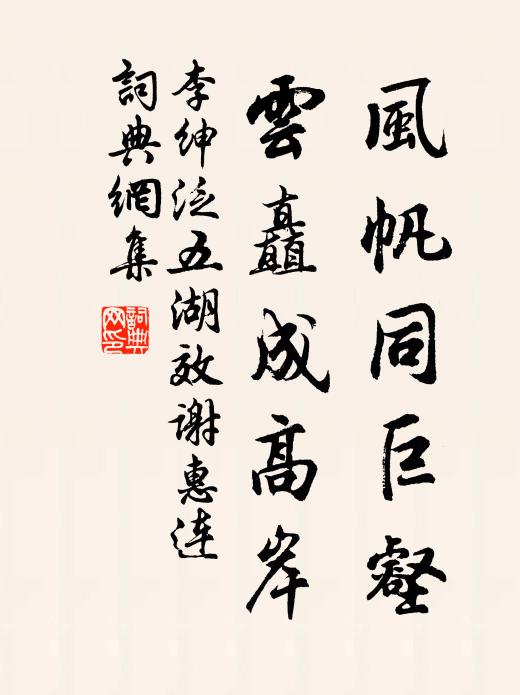 風帆同巨壑
雲矗成高岸
李紳泛五湖效謝惠連
詞典網集
詞典
网印